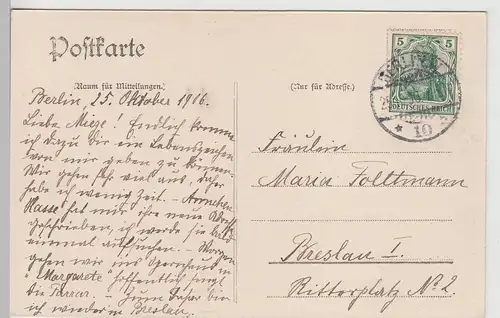 Postkarte
(Raum für Mitteilungen.)
(Nur für Adresse.)
5 5
DEUTSCHES REICH
BERLIN
* 10
Berlin, 25. Oktober 1906.
Liebe Mieze! Endlich komme
ich dazu Dir ein Lebenszeichen
von mir geben zu können.
Wir gehen sehr viel aus, daher
habe ich wenig Zeit. – Annchen
Hasse hat mir ihre neue Adresse
geschrieben, ich werde sie bald
einmal aufsuchen. – Morgen
gehen wir ins Opernhaus in
"Margarete" hoffentlich singt
die Farrar. – Zum bin
ich wieder in Breslau.
Fräulein
Maria Folttmann
Breslau I.
Ritterplatz No 2.